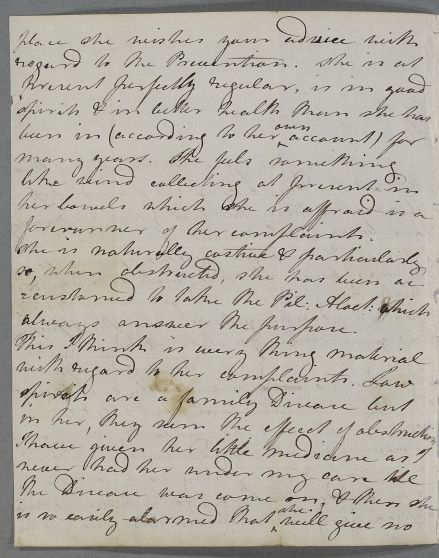 place she wishes your advice with
regard to the Prevention. She is at
present perfectly regular, is in good
spirits & in better health than she has
been in (according to her own account) for
many years. She feels something
like wind collecting at present in
her bowels which she is affraid is a
forerunner of her complaints.
She is naturally costive & particularly
so, when obstructed, she has been ac
=customed to take the Pil: Aloet: which
always answer the purpose.
This I think is every thing material
with regard to her complaints. Low
spirits are a family Disease but
in her, they seem the effect of obstruction
I have given her little medicine as I
never had her under my care till
the Disease was come on, & then she
is so easily alarmed that she will give no